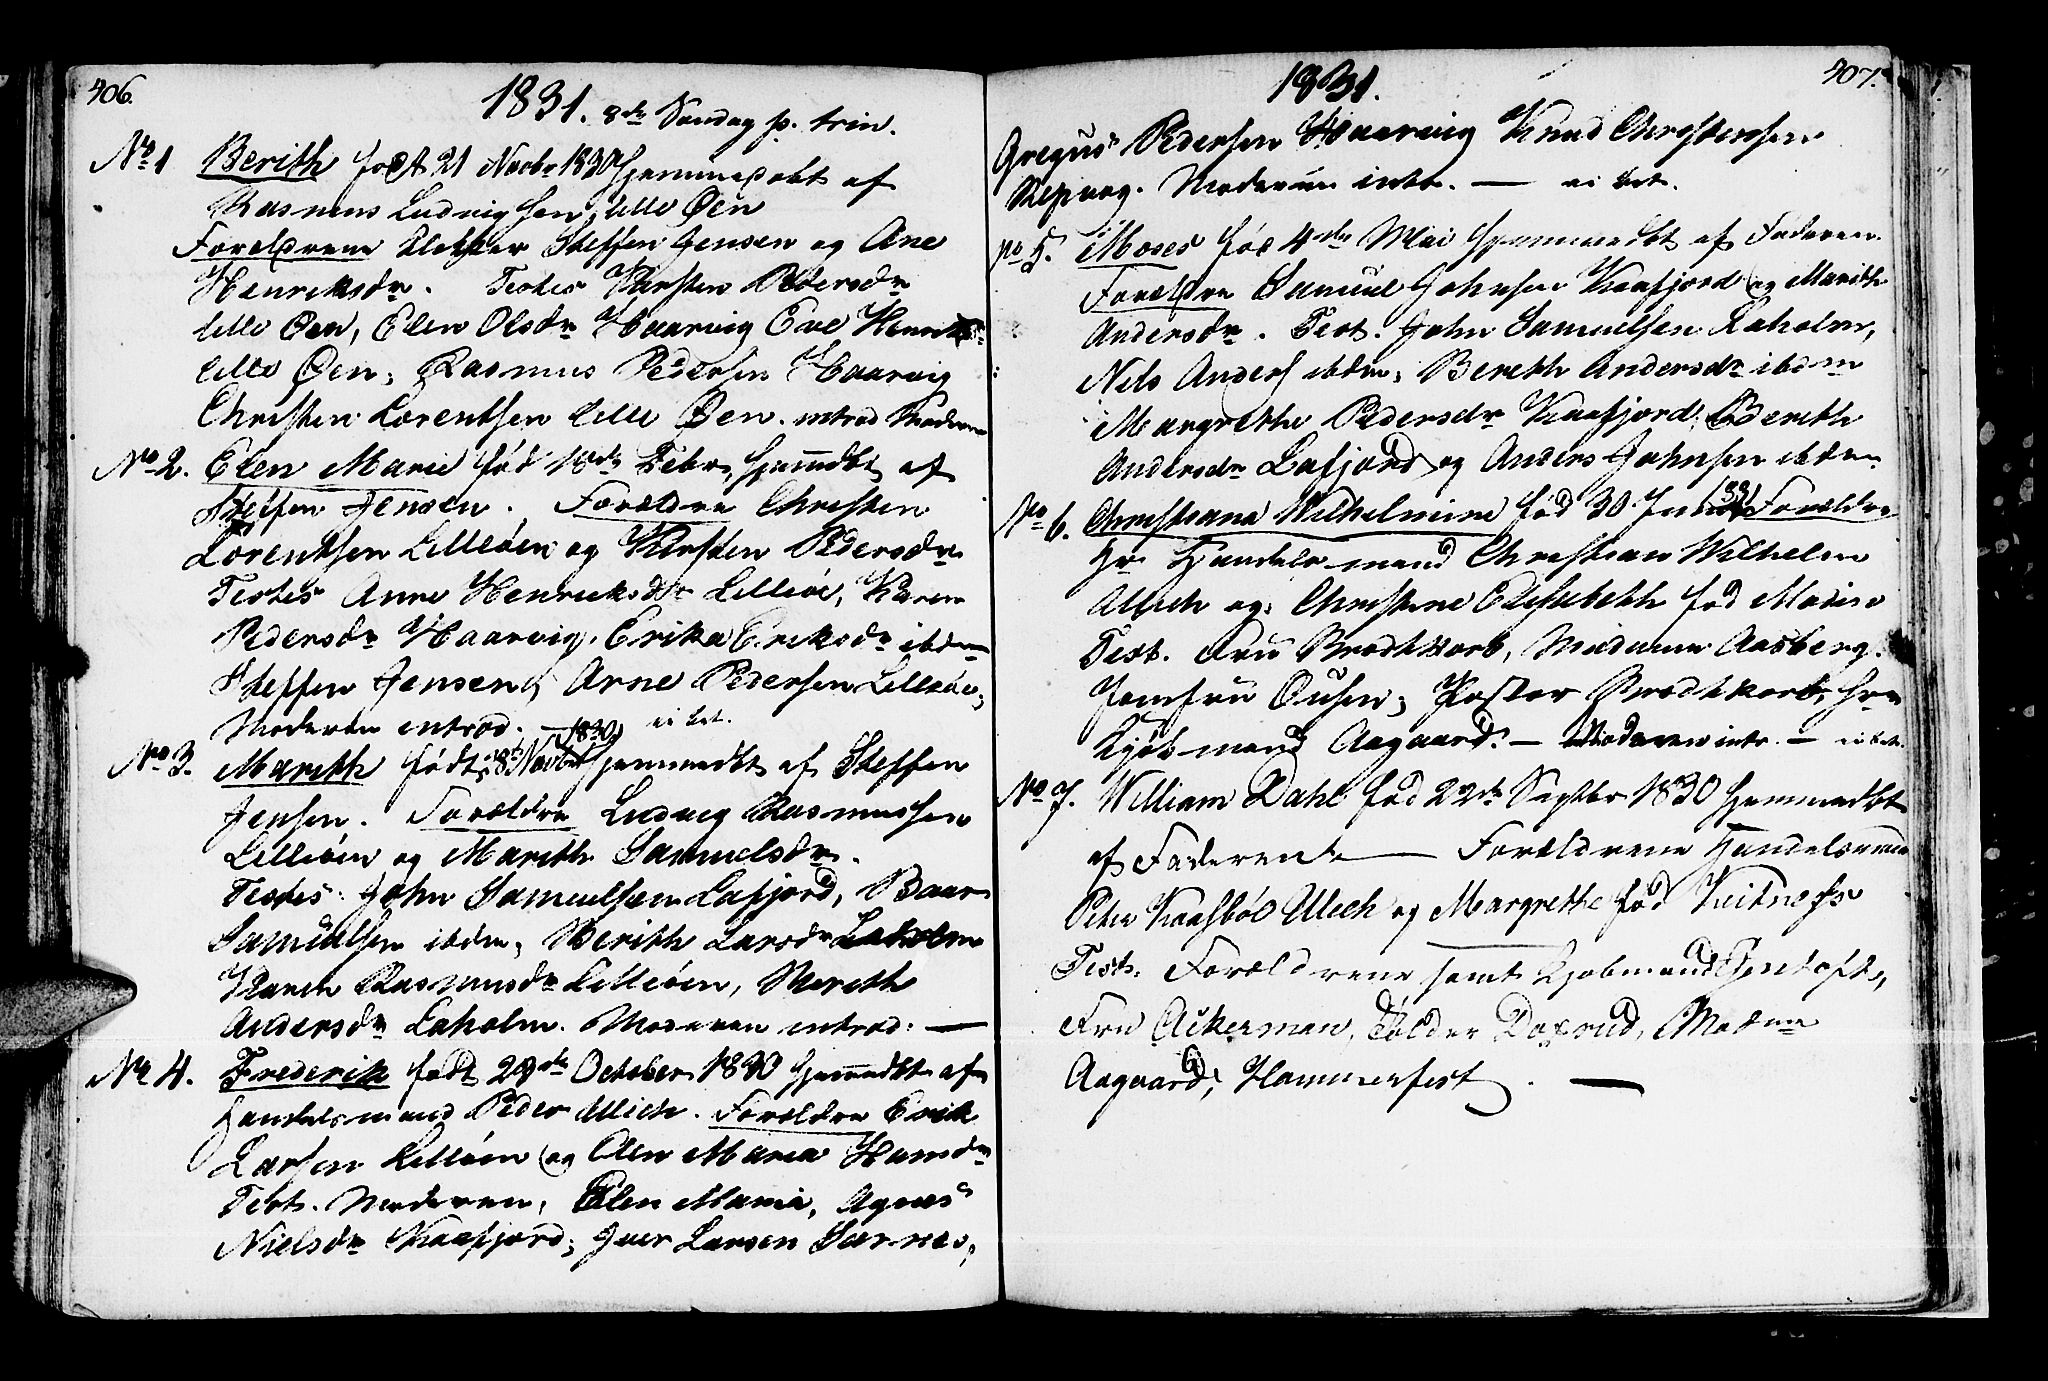 406.
1831. 8de Søndag p. trin.
No 1 Berith født 21 Novbr 1830 Hjemmedøbt af
Rasmus Ludvigsen, lille Øen
Forældrene Klokker Steffen Jensen og Ane
Henriksdr. Testes Kirsten Pedersdr
lille Øen, Elen Olsdr Haarvig Eve Henriksdr
lille Øen, Rasmus Pedersen Haarvig
Christen Lorentsen lille Øen. introd Moderen
No 2. Elen Marie fød 18de Febr. Hjemdbt af
Steffen Jensen. Forældre Christen
Lorentsen Lilleöen og Kirsten Pedersdr
Testes Anne Henriksdr Lilleöe, Karen
Pedersdr Haarvig, Erika Eriksdr ibdm
Steffen Jensen, Arne Pedersen Lilleöe,
Moderen introd. — ei bet.
No 3. Mareth født 18de Novbr 1830 Hjemmedbt af Steffen
Jensen. Forældre Ludvig Rasmussen
Lilleöen og Mareth Samuelsdr.
Testes: John Samuelsen Lafjord, Baar
Samuelsen ibdm, Berith Larsdr Laholm
Karen Rasmusdr Lilleöen, Mereth
Andersdr Laholm. Moderen introd. —
No 4. Frederik født 29de October 1830 Hjemmedbt af
Handelsmand Peder Ulich. Forældre Erik
Larsen Lilleöen og Elen Maria Hansdr
Test. Moderen, Elen Maria, Agnes
Nielsdr Kaafjord, Iver Larsen Sarnes,
407.
1831.
Gregus Pedersen Haarvig Knud Christensen
Repvog. Moderen intr. — ei bet.
No 5. Moses fød 4de Mai Hjemmedbt af Faderen.
Forældre Samuel Johnsen Kaafjord og Marith
Andersdr. Test. John Samuelsen Laholm,
Nils Anders ibdm, Bereth Andersdr ibdm
Margrethe Pedersdr Kaafjord, Bereth
Andersdr Lafjord og Anders Johnsen ibdm
No 6. Christiana Wilhelmine fød 30 Juni 1831 Forældre
Hr Handelsmand Christian Wilhelm
Ulich og Christine Elisabeth fød
Test. Fru Brodtkorb, Madame Aasberg.
Jomfru Ousen, Pastor Brodtkorb, Hr
Kjøbmand Aagaard. — Moderen intr. — ei bet.
No 7. William Dahl fød 22de Septbr 1830 Hjemmedbt
af Faderen — Forældrene Handelsmand
Peter Kaasböl Ulich og Margrethe fød
Test. Forældrene samt Kjøbmand Gentoft,
Fru Ackerman, Tolder Daxrud, Madme
Aagaard, Hammerfest. —